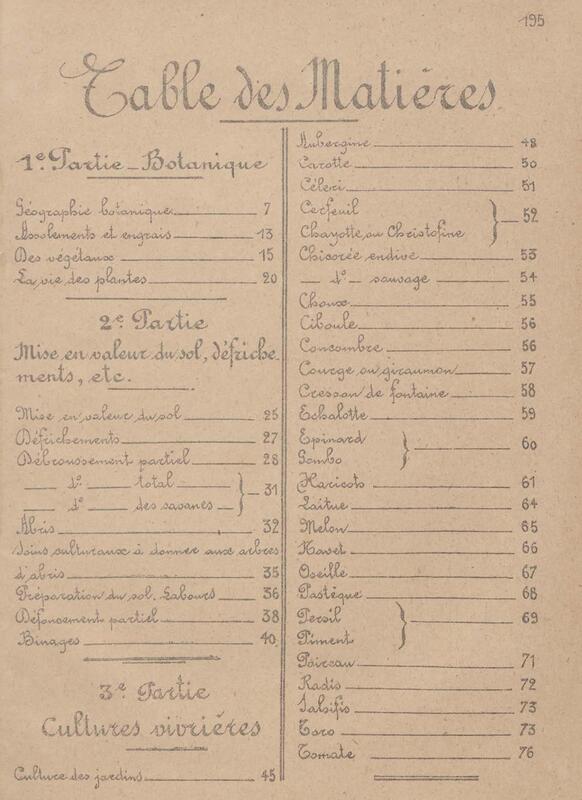 195
Table des Matières
1e. Partie - Botanique
Géographie botanique 7
Assolements et engrais 13
Des végétaux 15
La vie des plantes 20
2e. Partie
Mise en valeur du sol, défriche-
ments, etc.
Mise en valeur du sol 25
Défrichements 27
Débroussement partiel 28
— do. — total
— do. — des savanes } 31
Abris 32
Soins culturaux à donner aux arbres
d'abris 35
Préparation du sol. Labours 36
Défoncement partiel 38
Binages 40
3e. Partie
Cultures vivrières
Culture des jardins 45
Aubergine 48
Carotte 50
Céleri 51
Cerfeuil
Chayotte ou Christofine } 52
Chicorée endive 53
— do. — sauvage 54
Choux 55
Ciboule 56
Concombre 56
Courge ou giraumon 57
Cresson de fontaine 58
Echalotte 59
Epinard
Gombo } 60
Haricots 61
Laitue 64
Melon 65
Navet 66
Oseille 67
Pastèque 68
Persil
Piment } 69
Poireau 71
Radis 72
Salsifis 73
Taro 73
Tomate 76